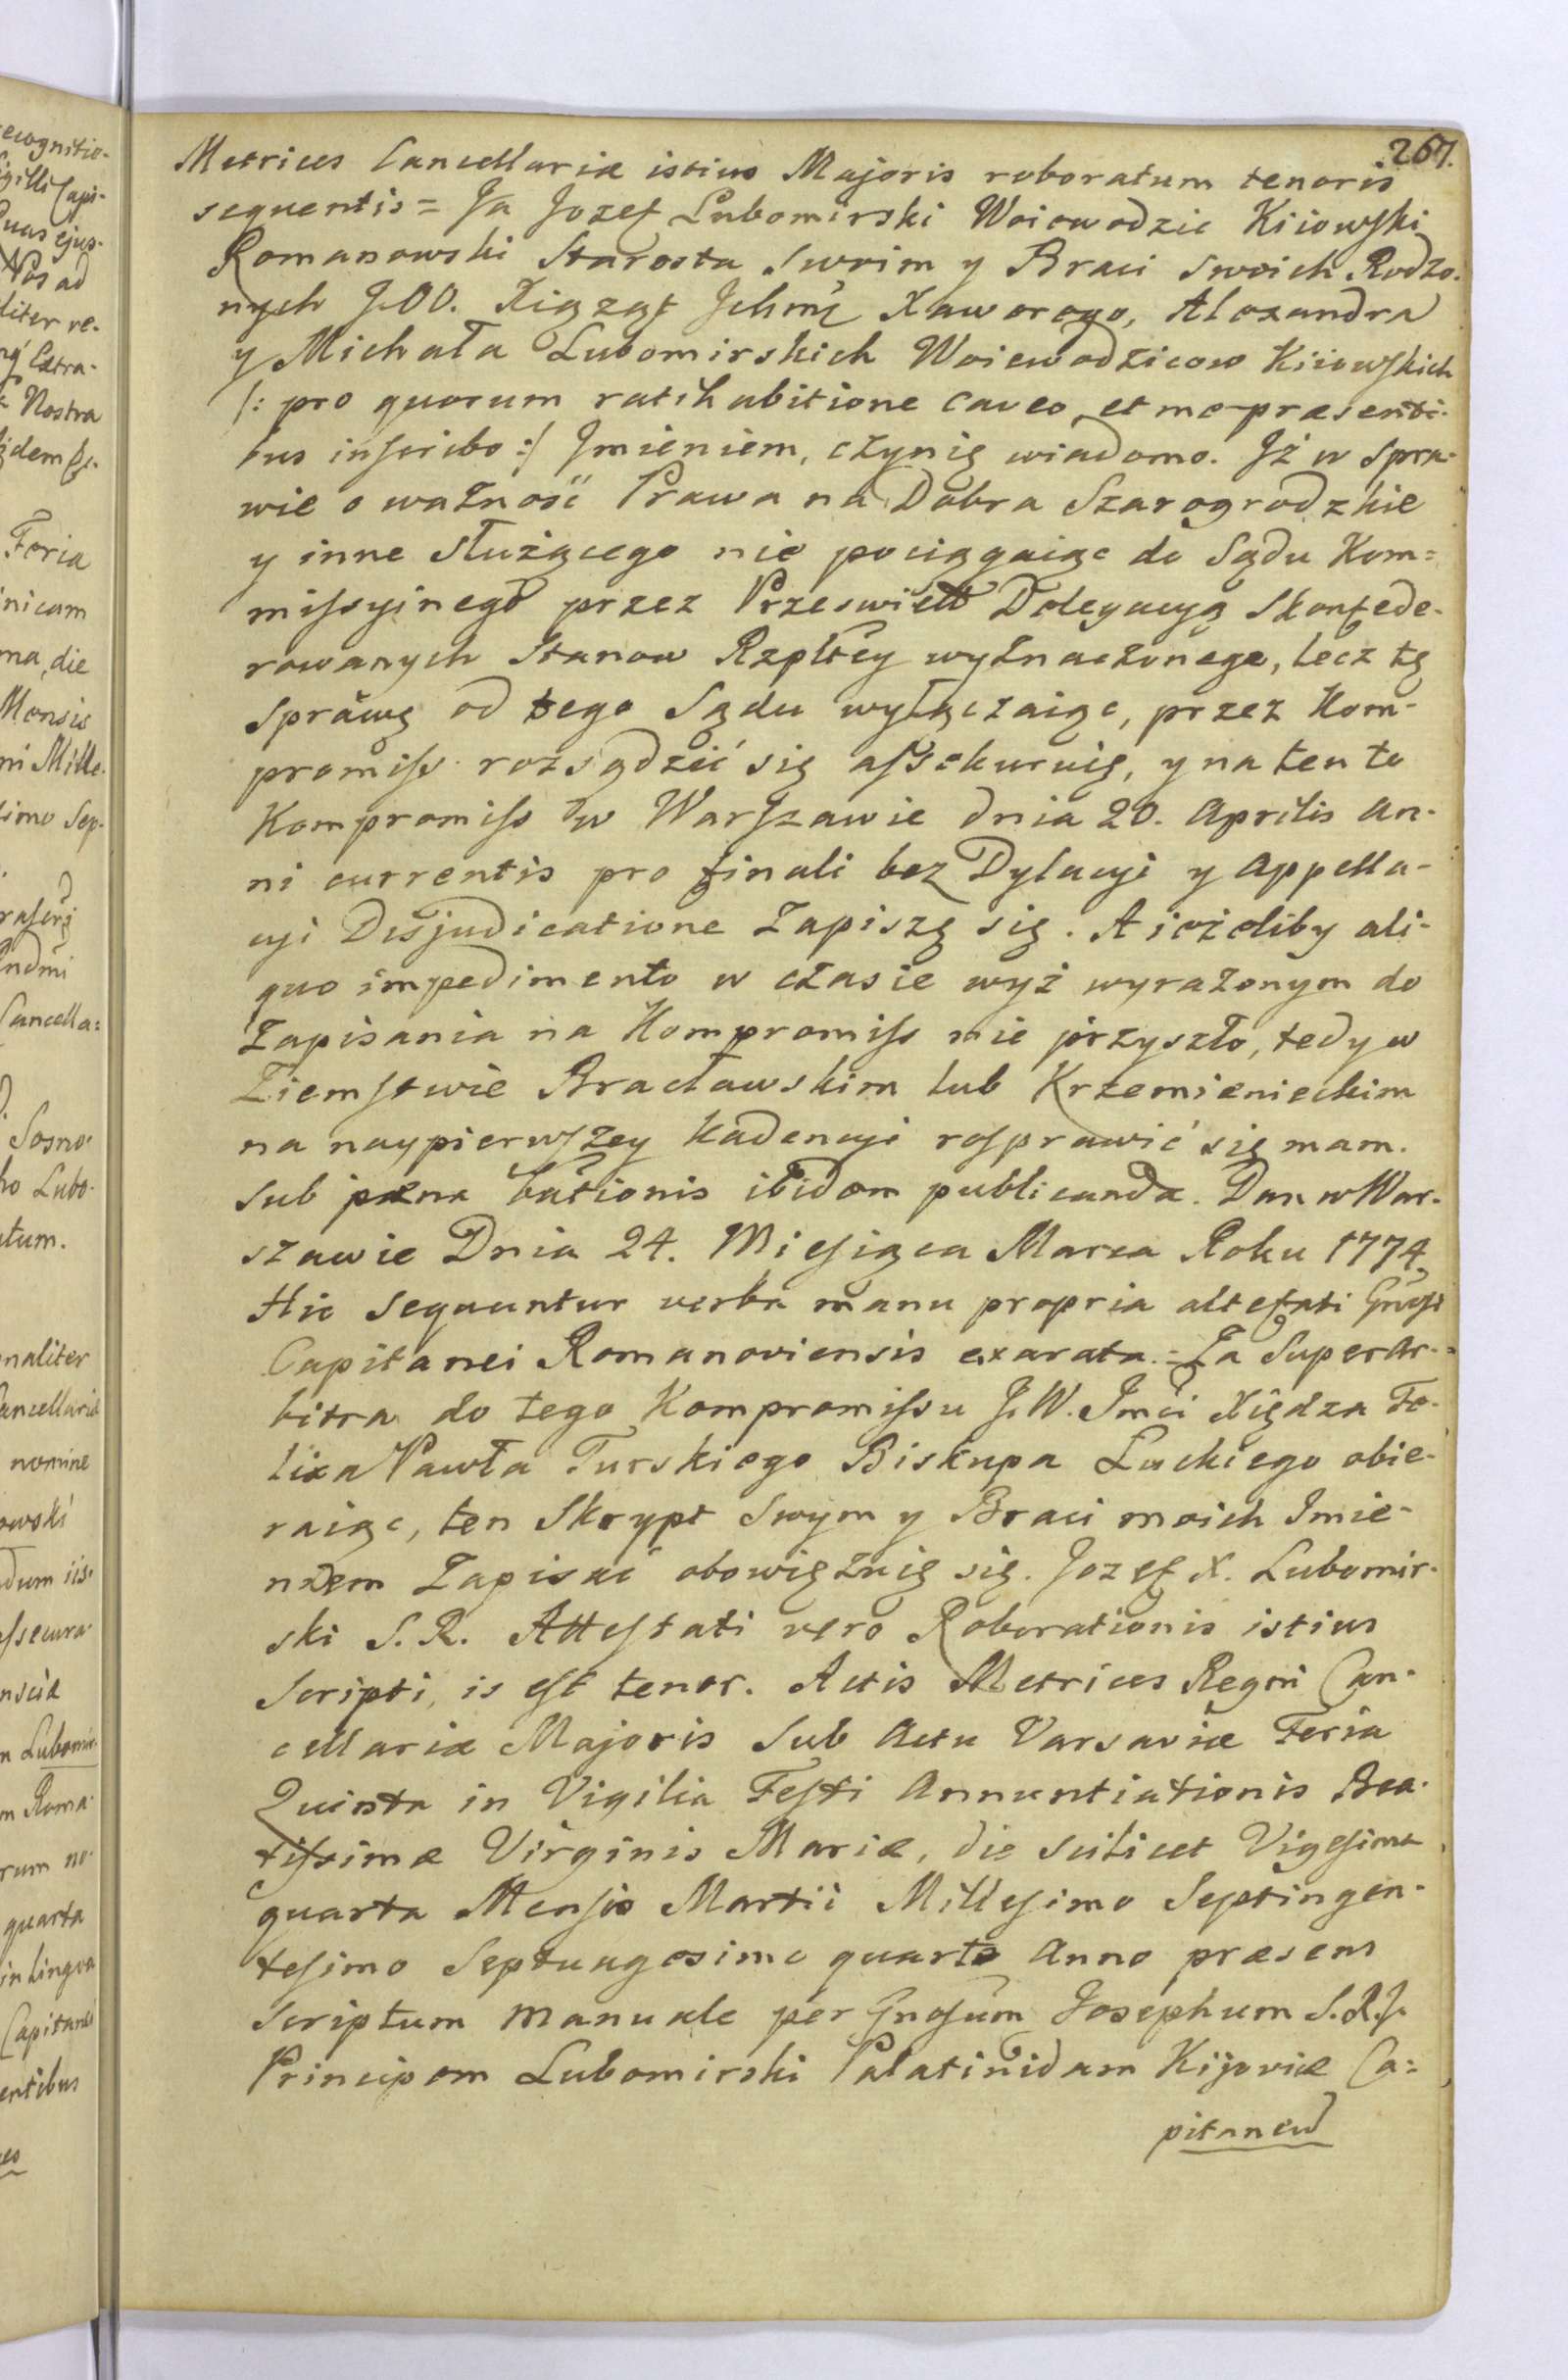 267.
Metrices Cancellariæ istius Majoris roboratum tenoris
sequentis = Ja Jozef Lubomirski Woiewodzic Kiiowski
Romanowski Starosta Swoim y Braci Swoich Rodzo-
nych J.OO. Xiążąt Jchmć Xawerego, Alexandra
y Michała Lubomirskich Woiewodzicow Kiiowskich
/: pro quorum ratihabitione caveo et me præsenti-
bus inscribo :/ Jmieniem, czynię wiadomo. Jż w Spra-
wie o ważność Prawa na Dobra Szarogrodzkie
y inne służącego nie pociągaiąc do Sądu Kom=
missyinego przez Przeswiett Delegacyą Skonfede-
rowanych Stanow Rzpltey wyznaczonego, lecz tę
Sprawę od tego Sądu wyłączaiąc, przez Kom-
promiss rozsądzić się assekuruię, y na ten to
Kompromiss w Warszawie dnia 20. Aprilis an-
ni currentis pro finali bez Dylacyi y Appella-
cyi Disjudicatione Zapiszę się. A ieżeliby ali-
quo impedimento w czasie wyż wyrażonym do
Zapisania na Kompromiss nie przyszło, tedy w
Ziemstwie Bracławskim lub Krzemienieckim
na naypierwszey Kadencyi rosprawić się mam.
Sub pæna bationis ibidem publicanda. Dan w War-
szawie Dnia 24. Miesiąca Marca Roku 1774
Hic Sequuntur verba manu propria attestati Gnosi
Capitanei Romanoviensis exarata. = Za Superar-
bitra do tego Kompromissu J.W. Jmći Xiędza Fe-
lixa Pawła Turskiego Biskupa Łuckiego obie-
raiąc, ten Skrypt Swym y Braci moich Jmie-
niem Zapisać obowiązuię się. Jozef X. Lubomir-
ski S.R. Attestati vero Roborationis istius
Scripti, is est tenor. Actis Metrices Regni Can-
cellariæ Majoris Sub Actu Varsaviæ Feria
Quinta in Vigilia Festi Annuntiationis Bea-
tissimæ Virginis Mariæ, die scilicet Vigesima
quarta Mensis Martii Millesimo Septingen-
tesimo Septuagesimo quarto Anno præsens
Scriptum manuale per Gnosum Josephum S.R.J.
Principem Lubomirski Palatinidam Kijoviæ Ca=
pitaneum